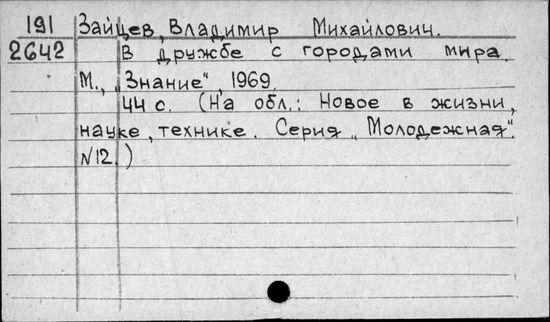 191 Зайцев, Владимир Михайлович.
2642 В дружбе с городами мира.
М., „Знание“, 1969.
44 с. (На обл.: Новое в жизни,
науке, технике. Серия „Молодежная“.
№12.)